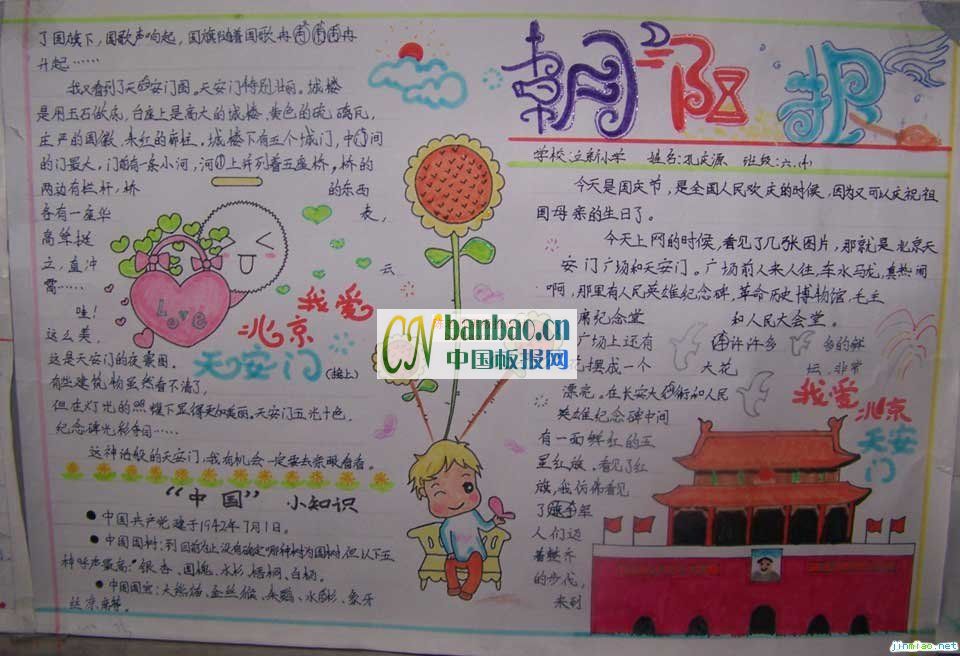 朝阳报
学校:立新小学 姓名:孔庆源 班级:六.
今天是国庆节,是全国人民欢庆的时候,因为又可以庆祝祖
国母亲的生日了。
今天上网的时候,看见了几张图片,那就是北京天
安门广场和天安门。广场前人来人往,车水马龙,真热闹
啊,那里有人民英雄纪念碑,革命历史博物馆,毛主
席纪念堂 和人民大会堂。
广场上还有 许许多多的鲜
花摆成一个 大花 坛,非常
漂亮。在长安大街和人民
英雄纪念碑中间
有一面鲜红的五
星红旗,看见了红
旗,我仿佛看见
了旗手
人们迈
着整齐
的步伐,
来到
了国旗下,国歌声响起,国旗随着国歌冉冉
升起……
我又看到了天安门图,天安门特别壮丽。城楼
是用玉石做底,台座上是高大的城楼,黄色的硫璃瓦,
庄严的国徽,朱红的廊柱,城楼下有五个城门,中间
的门最大,门前有一条小河,河上并列着五座桥,桥的
两边有栏杆,桥 的东西
各有一座华 表,
高耸挺
立,直冲 云
霄……
哇!
这么美,
这是天安门的夜景图。
有些建筑物虽然看不清了,
但在灯光的照耀下显得更加美丽。天安门五光十色,
纪念碑光彩夺目……
这神话般的天安门,我有机会一定要去亲眼看看。
Love
我爱
北京
天安门
(接上)
CN banbao.cn
中国板报网
我爱北京
天安
门
“中国” 小知识
●中国共产党建于1942年7月1日。
●中国国树:到目前为止,没有确定哪种树为国树,但以下五
种呼声最高:银杏、国槐、水杉、梧桐、白杨。
●中国国宝:大熊猫、金丝猴、朱鹮、水杉、象牙
jinmiao.net